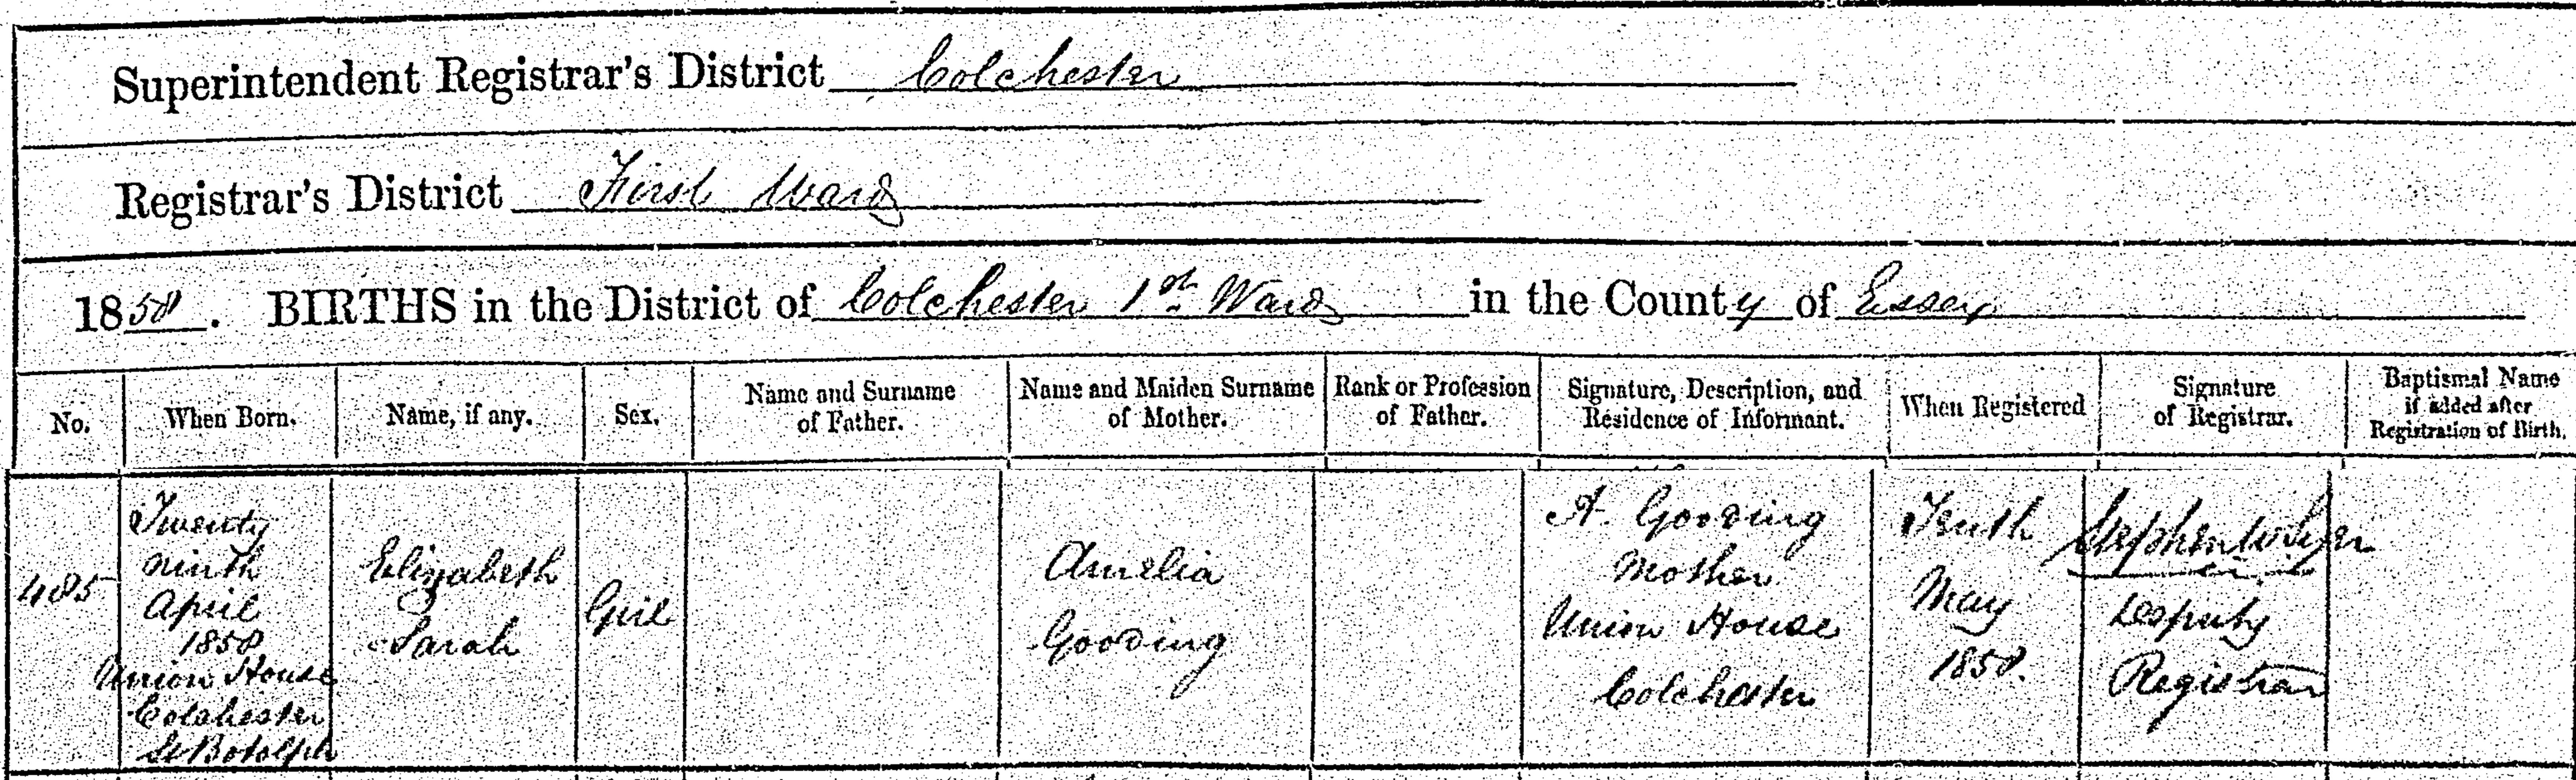 Superintendent Registrar's District Colchester
Registrar's District First Ward
1858. BIRTHS in the District of Colchester 1st Ward in the County of Essex
No.
When Born.
Name, if any.
Sex.
Name and Surname
of Father.
Name and Maiden Surname
of Mother.
Rank or Profession
of Father.
Signature, Description, and
Residence of Informant.
When Registered
Signature
of Registrar.
Baptismal Name
if added after
Registration of Birth.
485
Twenty
ninth
April
1858
Union House
Colchester
St Botolph
Elizabeth
Sarah
Girl
Amelia
Gooding
A. Gooding
Mother
Union House
Colchester
Tenth
May
1858.
Stephen W Syer
Deputy
Registrar